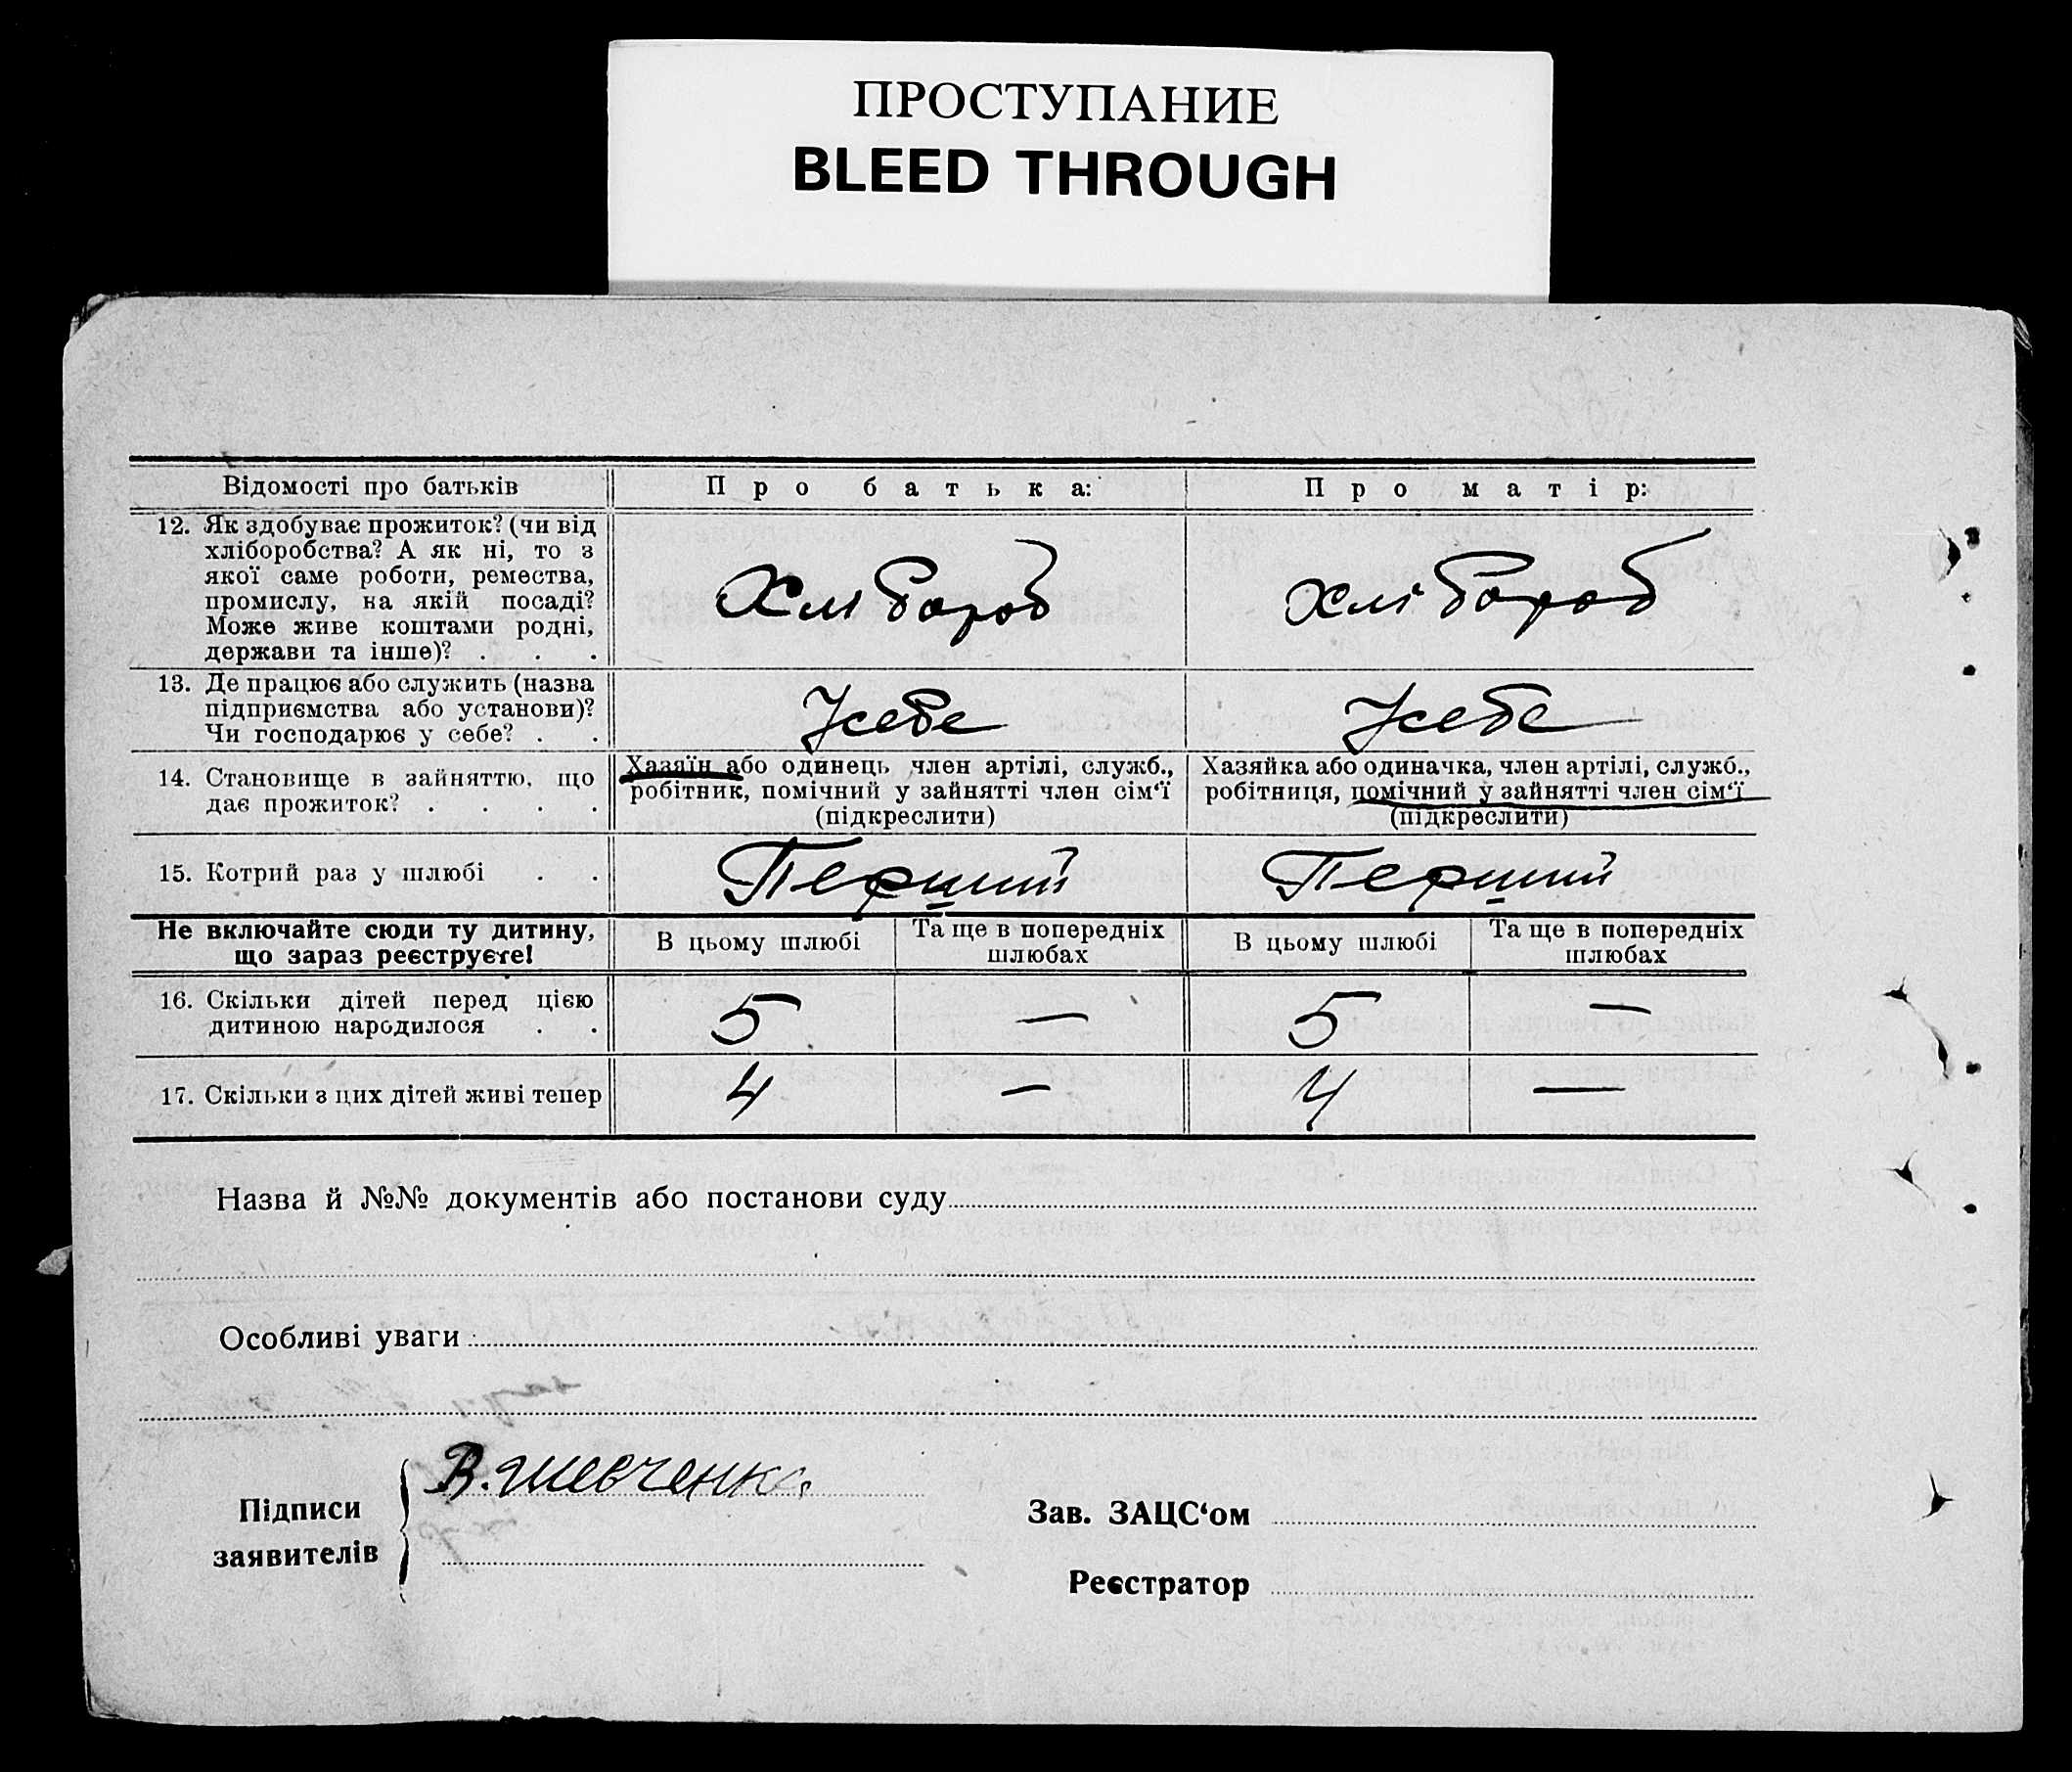 ПРОСТУПАНИЕ
BLEED THROUGH
Відомості про батьків
Про батька:
Про матір:
12. Як здобуває прожиток? (чи від
хліборобства? А як ні, то з
якої саме роботи, ремества,
промислу, на якій посаді?
Може живе коштами родні,
держави та інше)? . . .
Хлібороб
Хлібороб
13. Де працює або служить (назва
підприємства або установи)?
Чи господарює у себе? . .
Усебе
Усебе
14. Становище в зайняттю, що
дає прожиток? . . . .
Хазяїн або одинець член артілі, служб.,
робітник, помічний у зайнятті член сім‘ї
(підкреслити)
Хазяйка або одиначка, член артілі, служб.,
робітниця, помічний у зайнятті член сім‘ї
(підкреслити)
15. Котрий раз у шлюбі . .
Перший
Перший
Не включайте сюди ту дитину,
що зараз реєструєте!
В цьому шлюбі
Та ще в попередніх
шлюбах
В цьому шлюбі
Та ще в попередніх
шлюбах
16. Скільки дітей перед цією
дитиною народилося . .
5
—
5
—
17. Скільки з цих дітей живі тепер
4
—
4
—
Назва й №№ документів або постанови суду
Особливі уваги
Підписи
заявителів
В. Шевченко
Зав. ЗАЦС‘ом
Реєстратор